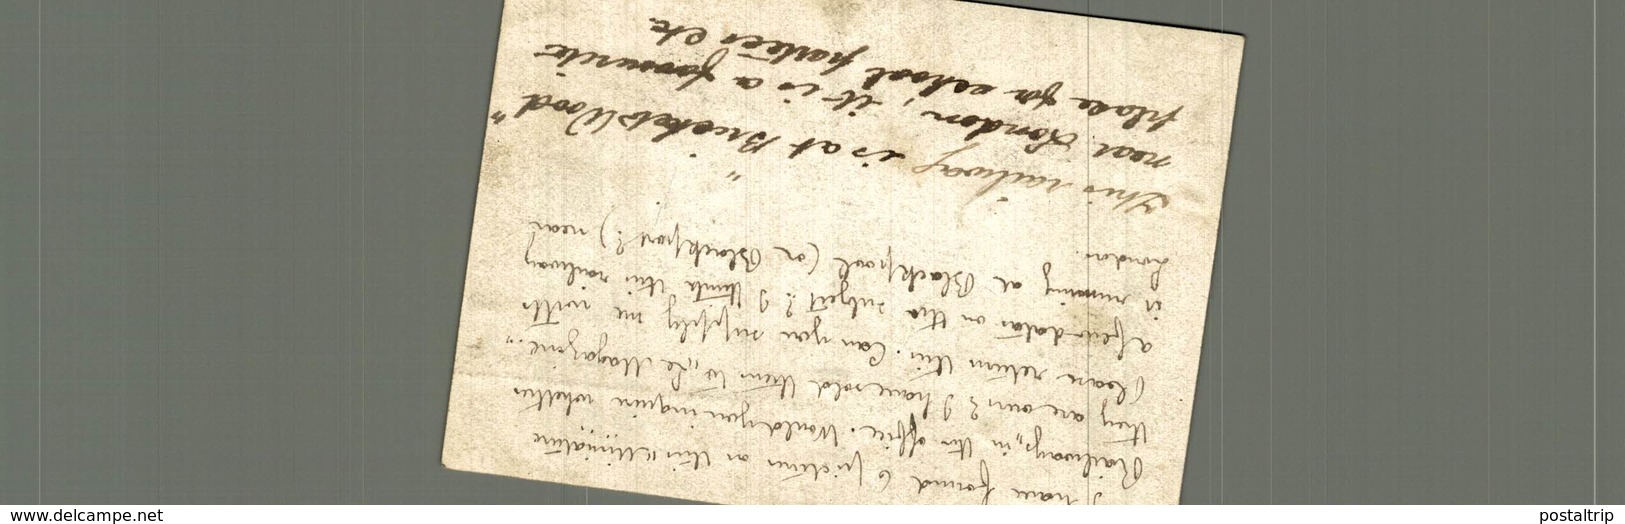 I have found 6 pictures on this "Miniature
Railway" in the office. Would you inquire whether
they are ours? I have sold them to "Le Magazine".
Please return this. Can you supply me with
a few datas on this subject? I think this railway
is running at Blackpool (or Blackport?) near
London.
This railway is at "Bricket Wood"
near London, it is a favourite
place for school parties etc
www.delcampe.net
postaltrip